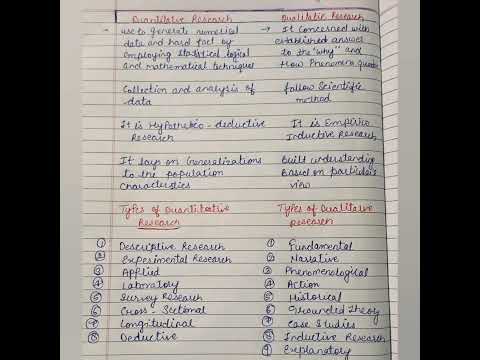 Quantitative Research
use to generate numerical
data and hard fact by
employing statistical, logical
and mathematical techniques
Collection and analysis of
data
It is Hypthebic - deductive
Research
It lays on Generalizations
to the population
Characteristics
Types of Quantitative
Research
① Descriptive Research
② Experimental Research
③ Applied
④ Labmotry
⑤ Survey Research
⑥ Cross - Sectional
⑦ Longitudinal
⑧ Deductive
Qualitative Research
→ It Concerned with
established answer
to the "why" and
How Phenomena
follow Scientific
method
It is Empirio
Inductive Research
Built understanding
Based on
view
Types of Qualitative
Research
① Fundamental
② Narrative
③ Phenomenological
④ Action
⑤ Historical
⑥ Grounded Theory
⑦ Case Studies
⑧ Inductive Research
⑨ Explanatory